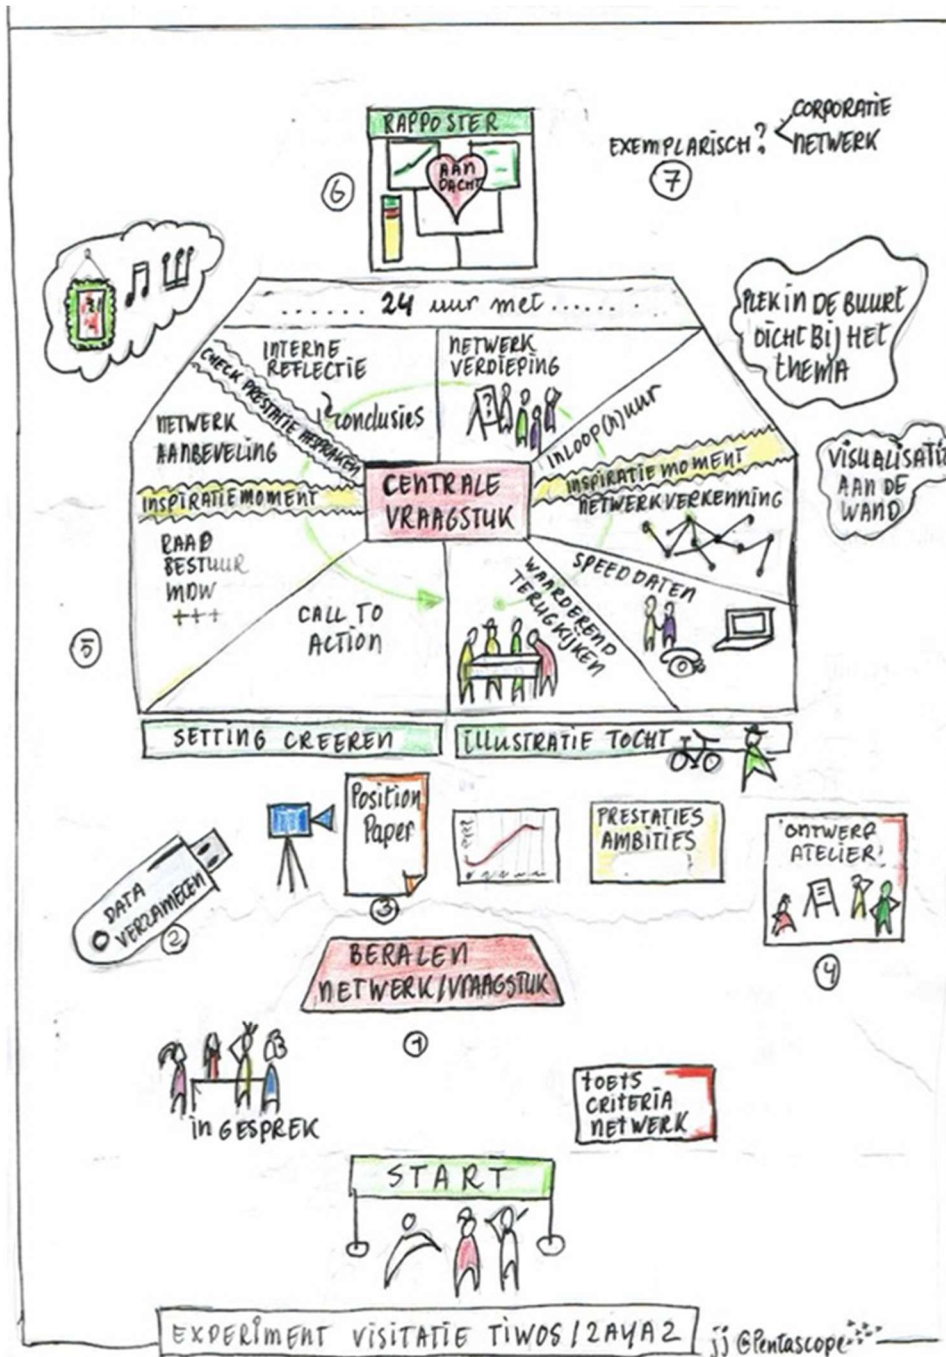 RAPPOSTER
AAN
DACHT
6
EXEMPLARISCH?
CORPORATIE
NETWERK
7
PLEK IN DE BUURT
DICHT BIJ HET
THEMA
VISUALISATIE
AAN DE
WAND
...... 24 uur met .......
INTERNE
REFLECTIE
conclusies
CHECK PRESTATIE AFSPRAKEN
NETWERK
AANBEVELING
INSPIRATIE MOMENT
RAAD
BESTUUR
MDW
+++
CALL TO
ACTION
CENTRALE
VRAAGSTUK
NETWERK
VERDIEPING
?
INLOOP(N)UUR
INSPIRATIE MOMENT
NETWERKVERKENNING
SPEEDDATEN
WAARDEREND
TERUGKIJKEN
5
SETTING CREEREN
ILLUSTRATIE TOCHT
Position
Paper
3
PRESTATIES
AMBITIES
ONTWERP
ATELIER!
4
DATA
VERZAMELEN
2
BEPALEN
NETWERK/VRAAGSTUK
1
in GESPREK
TOETS
CRITERIA
NETWERK
START
EXPERIMENT VISITATIE TIWOS / ZAYAZ
jj @Pentascope